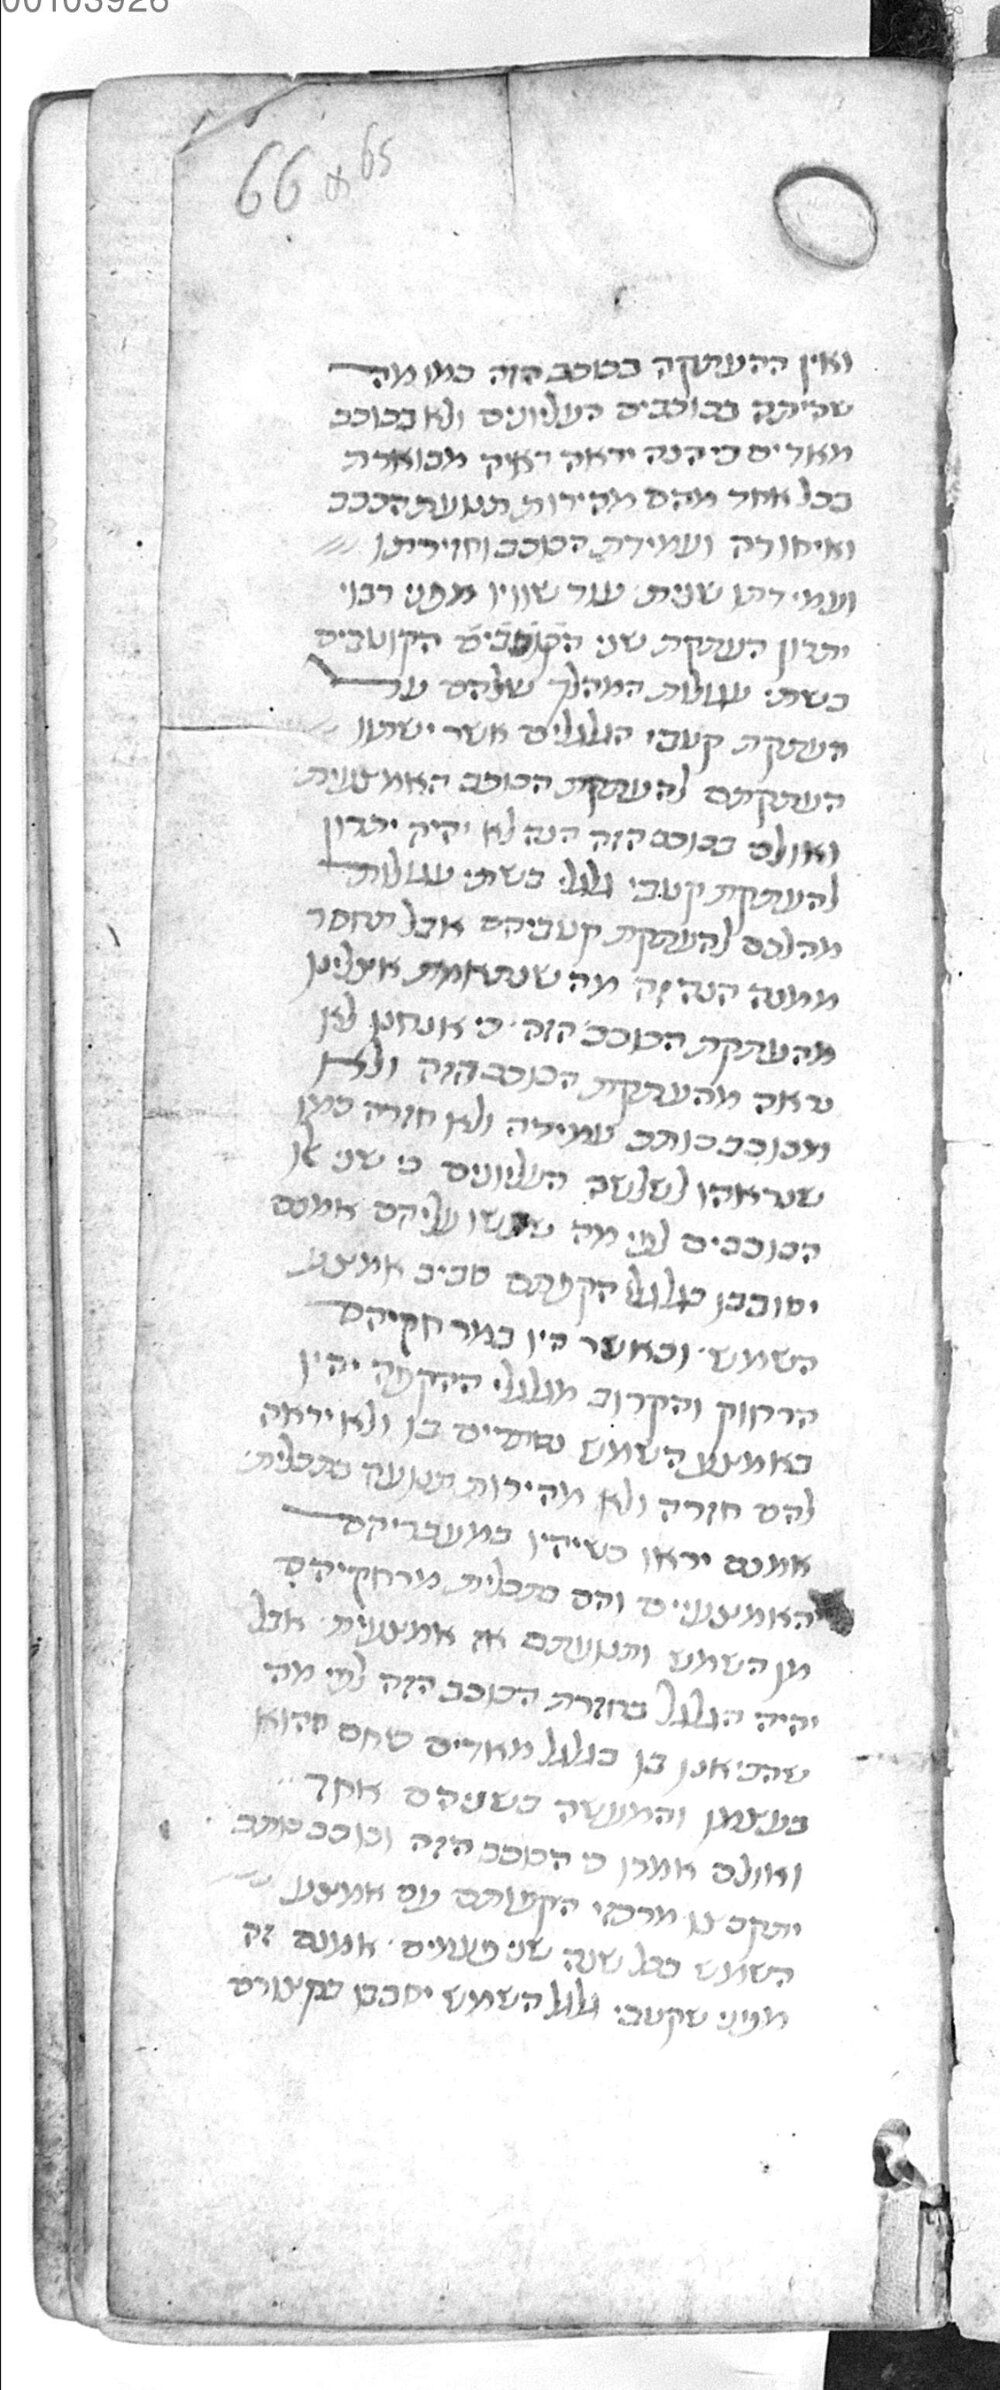 00103926
66 65
ואין ההעתקה בכוכב הזה כמו מה
שהיתה בכוכבים העליונים ולא בכוכב
מאדים כי הנה יראה ראיה מבוארת
בכל אחד מהם מהירות תנועת הככב
ואיחורה ועמידת הכוכב וחזירתו
ועמידתו שנית עוד שוויו מפני רבוי
יתרון העתקת שני הקוטבים הקוטבים
בשתי עגולות המהלך שלהם על
העתקת קטבי הגלגלים אשר ישתוו
העתקתם להעתקת הכוכב האמצעית
ואולם בכוכב הזה הנה לא יהיה יתרון
להעתקת קטבי גלגלי בשתי עגולות
מהלכם להעתקת קטביהם אבל תחסר
ממנה הנה זה מה שנתאמת אצלינו
מהעתקת הכוכב הזה כי אנחנו לא
נראה מהעתקת הכוכב הזה ולא
מכוכב כותב עמידה ולא חזרה כמו
שנראהו לשלשה העליונים כי שני אלו
הכוכבים לפי מה שעשו עליהם אמנם
יסובבו בגלגלי הקפתם סביב אמצע
השמש וכאשר היו במרחקיהם
הרחוק והקרוב מגלגלי ההקפה יהיו
באמצע השמש נסתרים בו ולא יראה
להם חזרה ולא מהירות תנועה בתכלית
אמנם יראו כשיהיו במעבריהם
האמצעיים והם בתכלית מרחקיהם
מן השמש ותנועתם אז אמצעית אבל
יהיה הגלגל בחזרת הכוכב הזה לפי מה
שהביאנו בו בגלגל מאדים שהם והוא
בעצמו והמעשה בשניהם אחד
ואולם אמרו כי הכוכב הזה וכוכב כותב
יתקבצו מרכזי הקפותם עם אמצע
השמש בכל שנה שני פעמים אמנם זה
מפני שקטבי גלגל השמש יסבבו בקצורם